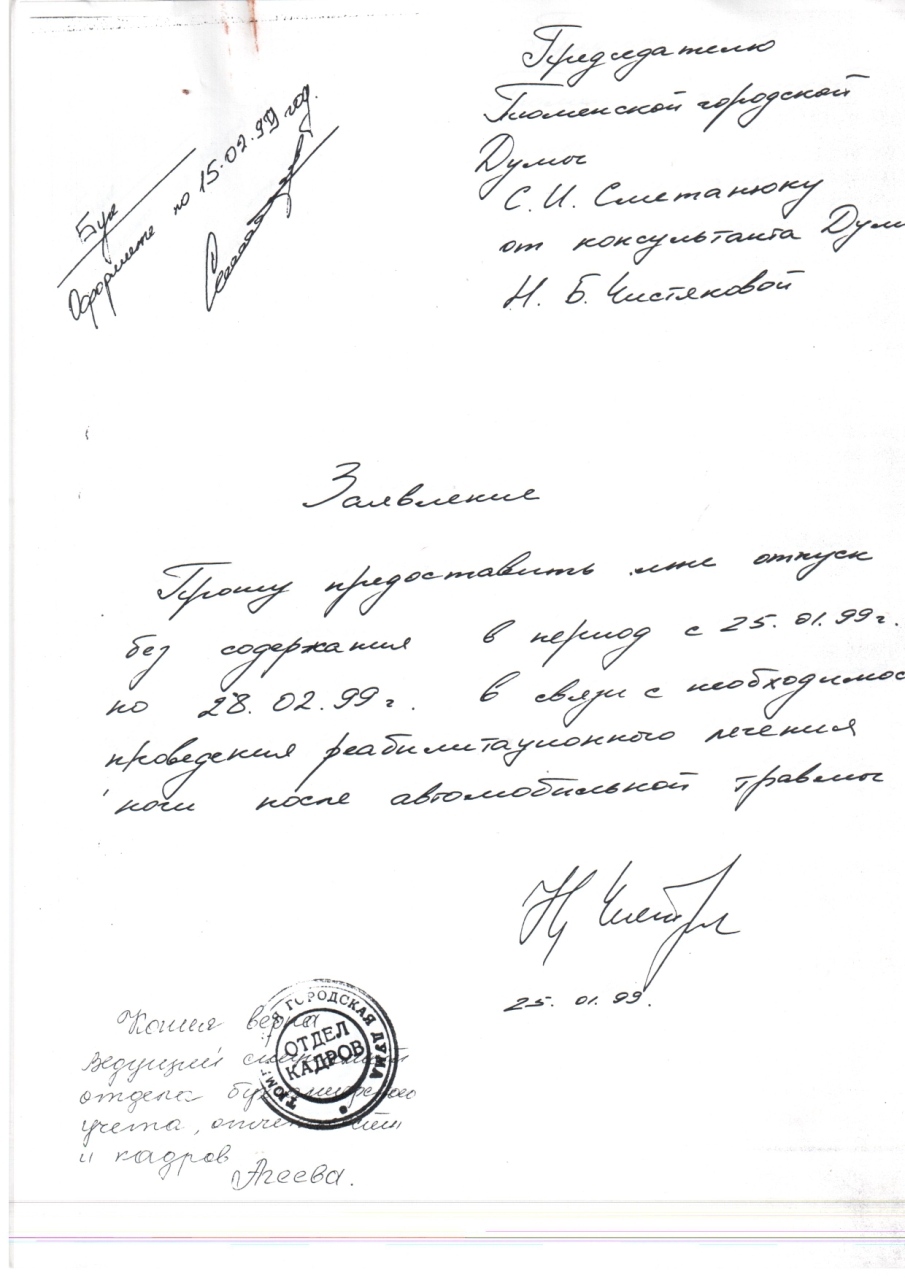 Председателю
Тюменской городской
Думы
С. И. Сметанюку
от консультанта Дум
Н. Б. Чистяковой
Бух
Оформите по 15.02.99 год.
Заявление
Прошу предоставить мне отпуск
без содержания в период с 25.01.99г.
по 28.02.99г. в связи с необходимос
проведения реабилитационного лечения
ноги после автомобильной травмы
25. 01. 99.
Копия верна
ведущий
отдела
учета,
и кадров
Агеева.
ГОРОДСКАЯ ДУМА
ОТДЕЛ
КАДРОВ